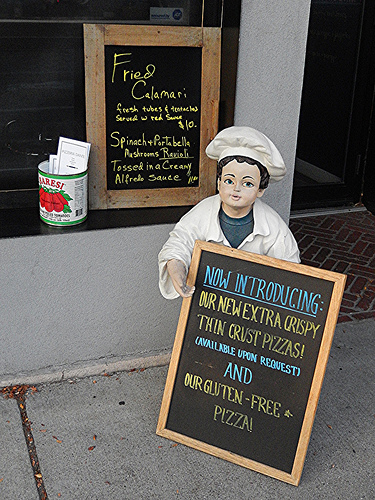 Fried
Calamari
fresh tubes & tentacles
served w red sauce
$10.
Spinach + Portabella
Mushrooms Ravioli
Tossed in a Creamy
Alfredo Sauce
ARESI
NOW INTRODUCING:
OUR NEW EXTRA CRISPY
THIN CRUST PIZZAS!
(AVAILABLE UPON REQUEST)
AND
OUR GLUTEN-FREE
PIZZA!